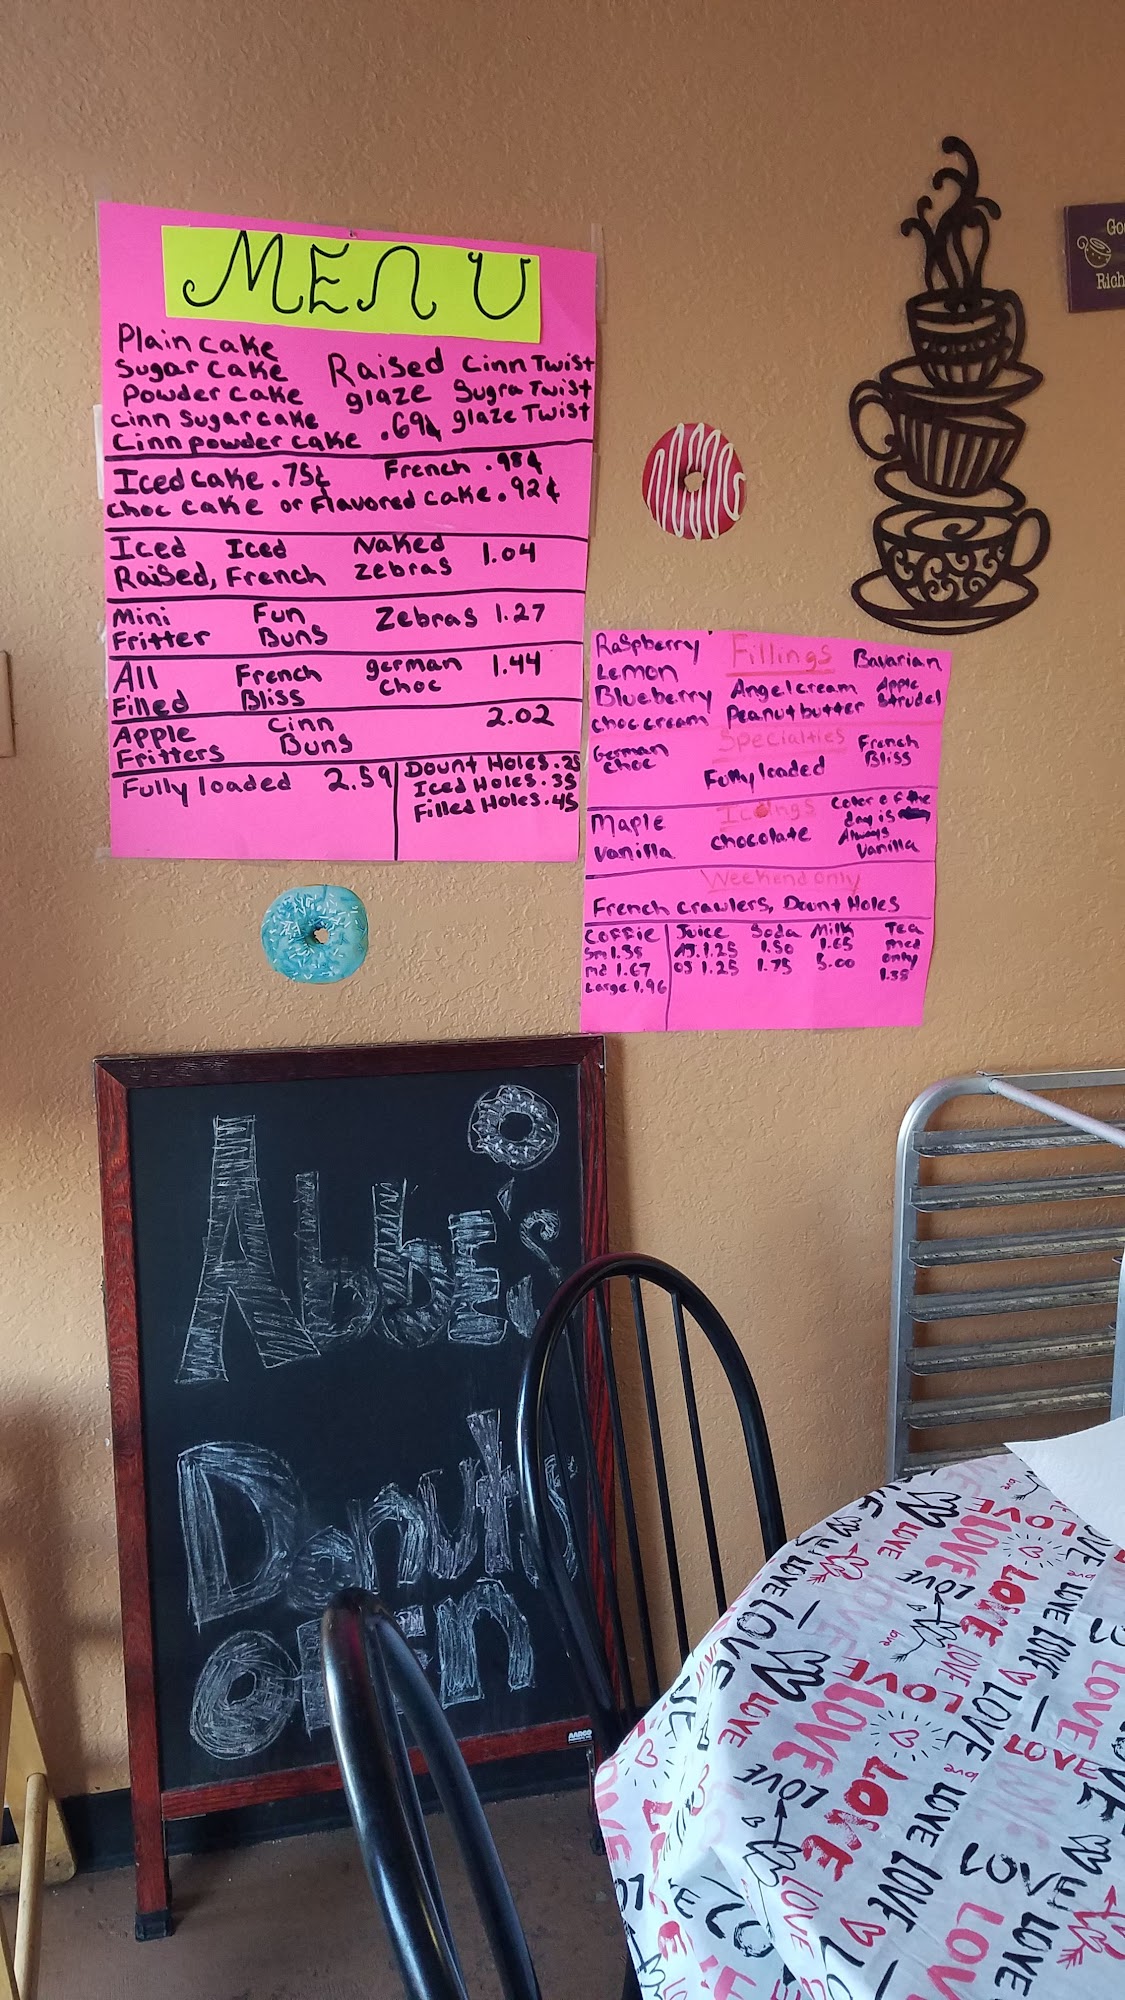 MENU
Plain cake
Sugar cake
Powder cake
Cinn Sugar cake
Cinn powder cake
Raised
glaze
.69¢
Cinn Twist
Sugra Twist
glaze Twist
Iced cake .75¢ French .98¢
choc cake or Flavored cake .92¢
Iced Iced Naked 1.04
Raised, French zebras
Mini Fun Zebras 1.27
Fritter Buns
All French german 1.44
Filled Bliss choc
Apple Cinn 2.02
Fritters Buns
Fully loaded 2.59
Dount Holes .25
Iced Holes .35
Filled Holes .45
Fillings
Raspberry
Lemon
Blueberry
choc cream
Angel cream
Peanut butter
Bavarian
Apple
Strudel
Specialties
German
choc
Fully loaded
French
Bliss
Icings
Maple
Vanilla
chocolate
color of the
day is
Always
Vanilla
Weekend only
French crawlers, Dount Holes
Coffie
Sm 1.35
md 1.67
Large 1.96
Juice
AJ. 1.25
OJ 1.25
Soda
1.50
1.75
Milk
1.65
5.00
Tea
med
only
1.35
Abbe's
Donuts
OPEN
AARCO
Rich